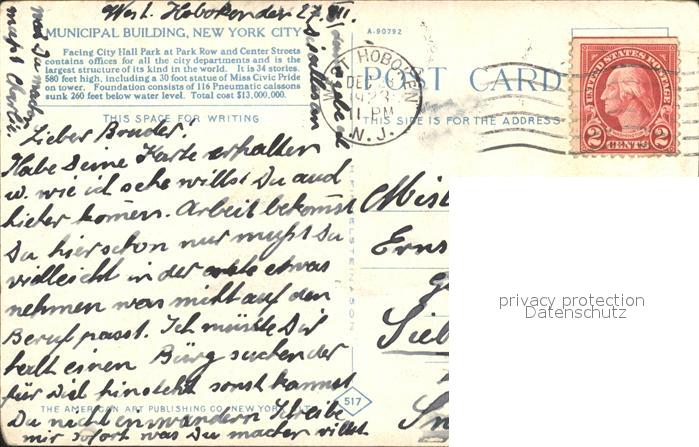 West. Hoboken den 27. XII.
MUNICIPAL BUILDING, NEW YORK CITY
Facing City Hall Park at Park Row and Center Streets
contains offices for all the city departments and is the
largest structure of its kind in the world. It is 34 stories,
580 feet high, including a 30 foot statue of Miss Civic Pride
on tower. Foundation consists of 116 Pneumatic caissons
sunk 260 feet below water level. Total cost $13,000,000.
THIS SPACE FOR WRITING
Lieber Bruder!
Habe Deine Karte erhalten
u. wie ich sehe willst Du auch
hieher kommen. Arbeit bekommst
Du hier schon nur mußt Du
vielleicht in der erste etwas
nehmen was nicht auf den
Beruf passt. Ich müßte Dir
halt einen Bürg suchen der
für Dich hinsteht sonst kannst
Du nicht einwandern Schreibe
mir sofort was Du machen willst
THE AMERICAN ART PUBLISHING CO., NEW YORK CITY
517
A-90792
POST CARD
THIS SIDE IS FOR THE ADDRESS
WEST HOBOKEN
DEC
1923
11-PM
N. J.
UNITED STATES POSTAGE
2 CENTS 2
Mist
Erns
Sieb
privacy protection
Datenschutz